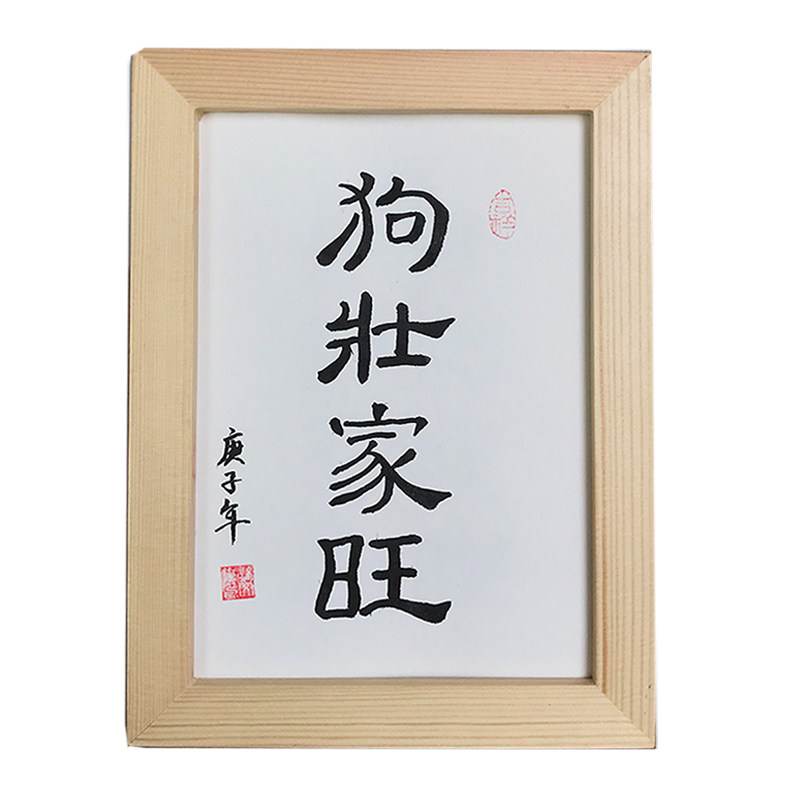 狗壯家旺
庚子年